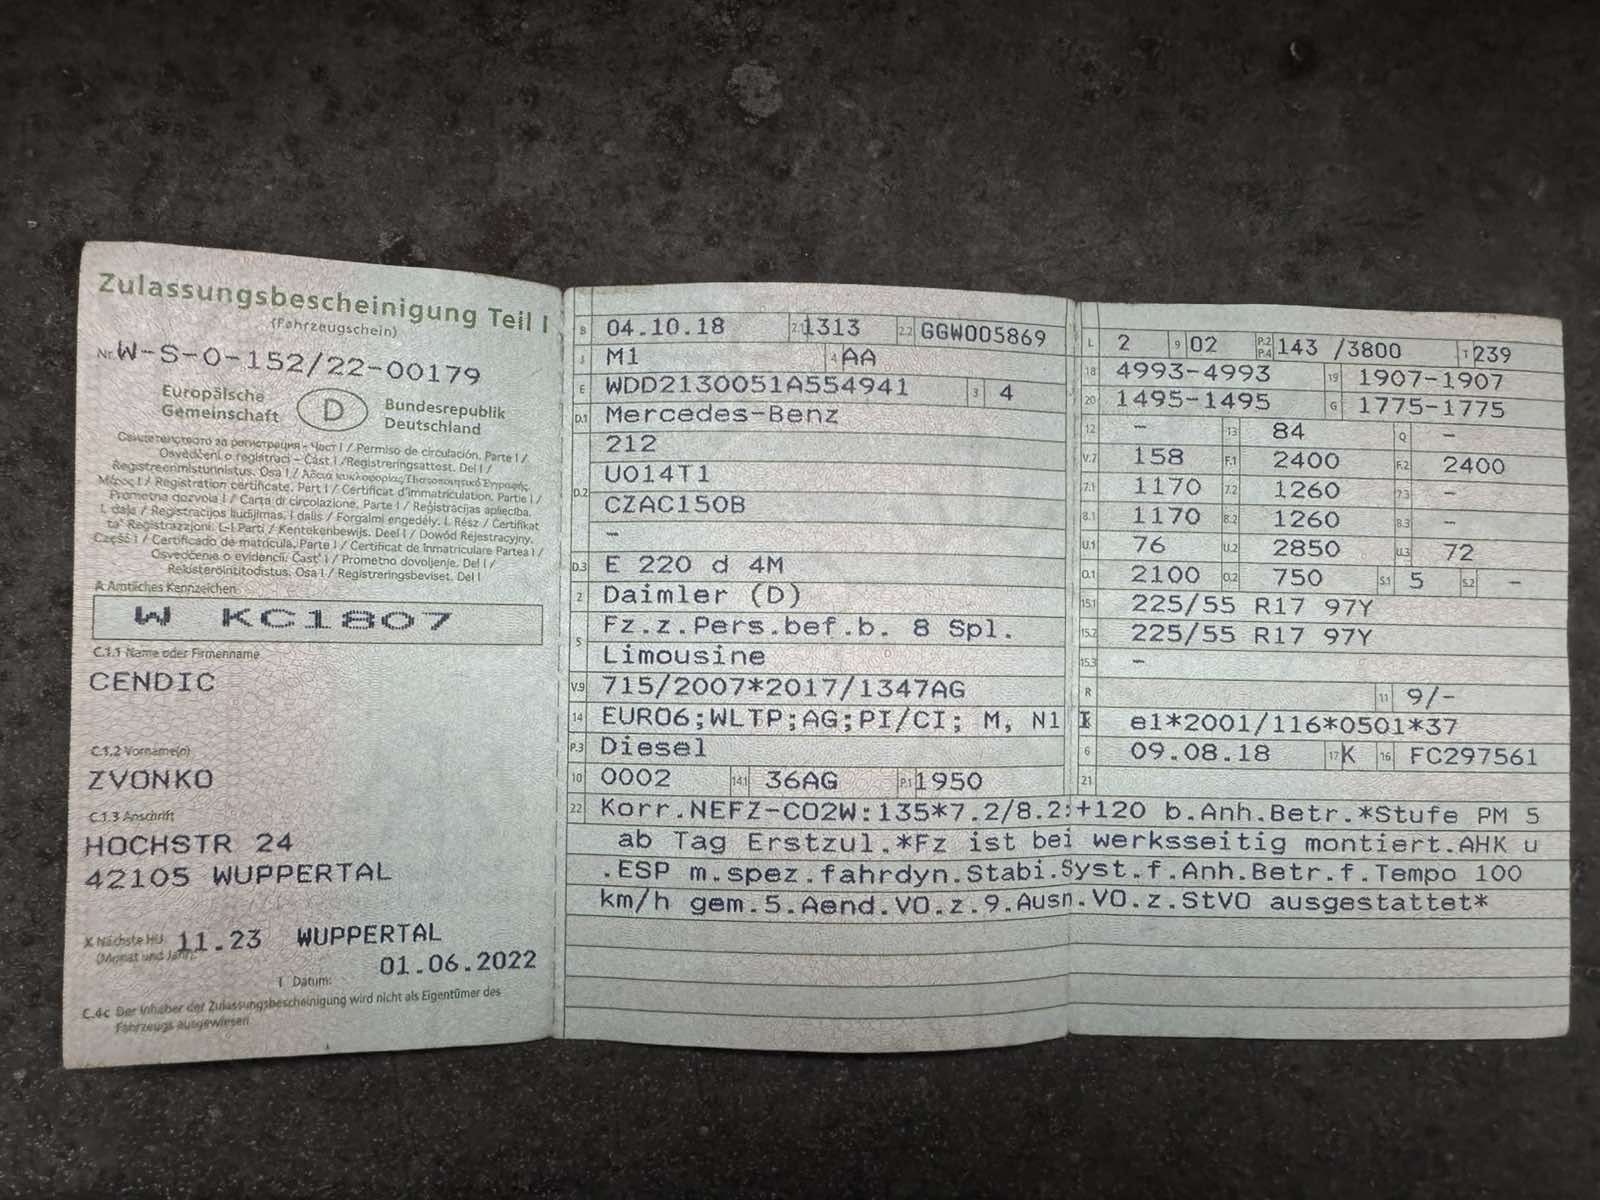 Zulassungsbescheinigung Teil I
(Fahrzeugschein)
Nr. W-S-0-152/22-00179
Europäische Gemeinschaft
D
Bundesrepublik Deutschland
Свидетелството за регистрация - Част I / Permiso de circulación. Parte I /
Osvědčení o registraci - Část I / Registreringsattest. Del I /
Registreerimistunnistus. Osa I / Άδεια κυκλοφορίας/Πιστοποιητικό Εγγραφής.
Μέρος I / Registration certificate. Part I / Certificat d'immatriculation. Partie I /
Prometna dozvola I / Carta di circolazione. Parte I / Reģistrācijas apliecība.
I. daļa / Registracijos liudijimas. I dalis / Forgalmi engedély. I. Rész / Ċertifikat
ta' Reġistrazzjoni. L-I Parti / Kentekenbewijs. Deel I / Dowód Rejestracyjny.
Część I / Certificado de matrícula. Parte I / Certificat de înmatriculare Partea I /
Osvedčenie o evidencii. Časť I / Prometno dovoljenje. Del I /
Rekisteröintitodistus. Osa I / Registreringsbeviset. Del I
A Amtliches Kennzeichen
W KC1807
C.1.1 Name oder Firmenname
CENDIC
C.1.2 Vorname(n)
ZVONKO
C.1.3 Anschrift
HOCHSTR 24
42105 WUPPERTAL
X Nächste HU 11.23 WUPPERTAL
(Monat und Jahr)
01.06.2022
I Datum:
C.4c Der Inhaber der Zulassungsbescheinigung wird nicht als Eigentümer des
Fahrzeugs ausgewiesen.
B 04.10.18 2.1 1313 2.2 GGW005869
J M1 4 AA
E WDD2130051A554941 3 4
D.1 Mercedes-Benz
212
D.2 U014T1
CZAC150B
-
D.3 E 220 d 4M
2 Daimler (D)
5 Fz.z.Pers.bef.b. 8 Spl.
Limousine
V.9 715/2007*2017/1347AG
14 EURO6;WLTP;AG;PI/CI; M, N1 I
P.3 Diesel
10 0002 14.1 36AG P.1 1950
L 2 9 02 P.2 P.4 143 /3800 T 239
18 4993-4993 19 1907-1907
20 1495-1495 G 1775-1775
12 - 13 84 Q -
V.7 158 F.1 2400 F.2 2400
7.1 1170 7.2 1260 7.3 -
8.1 1170 8.2 1260 8.3 -
U.1 76 U.2 2850 U.3 72
O.1 2100 O.2 750 S.1 5 S.2 -
15.1 225/55 R17 97Y
15.2 225/55 R17 97Y
15.3 -
R 11 9/-
K e1*2001/116*0501*37
6 09.08.18 17 K 16 FC297561
21
22 Korr.NEFZ-CO2W:135*7.2/8.2:+120 b.Anh.Betr.*Stufe PM 5
ab Tag Erstzul.*Fz ist bei werksseitig montiert.AHK u
.ESP m.spez.fahrdyn.Stabi.Syst.f.Anh.Betr.f.Tempo 100
km/h gem.5.Aend.VO.z.9.Ausn.VO.z.StVO ausgestattet*